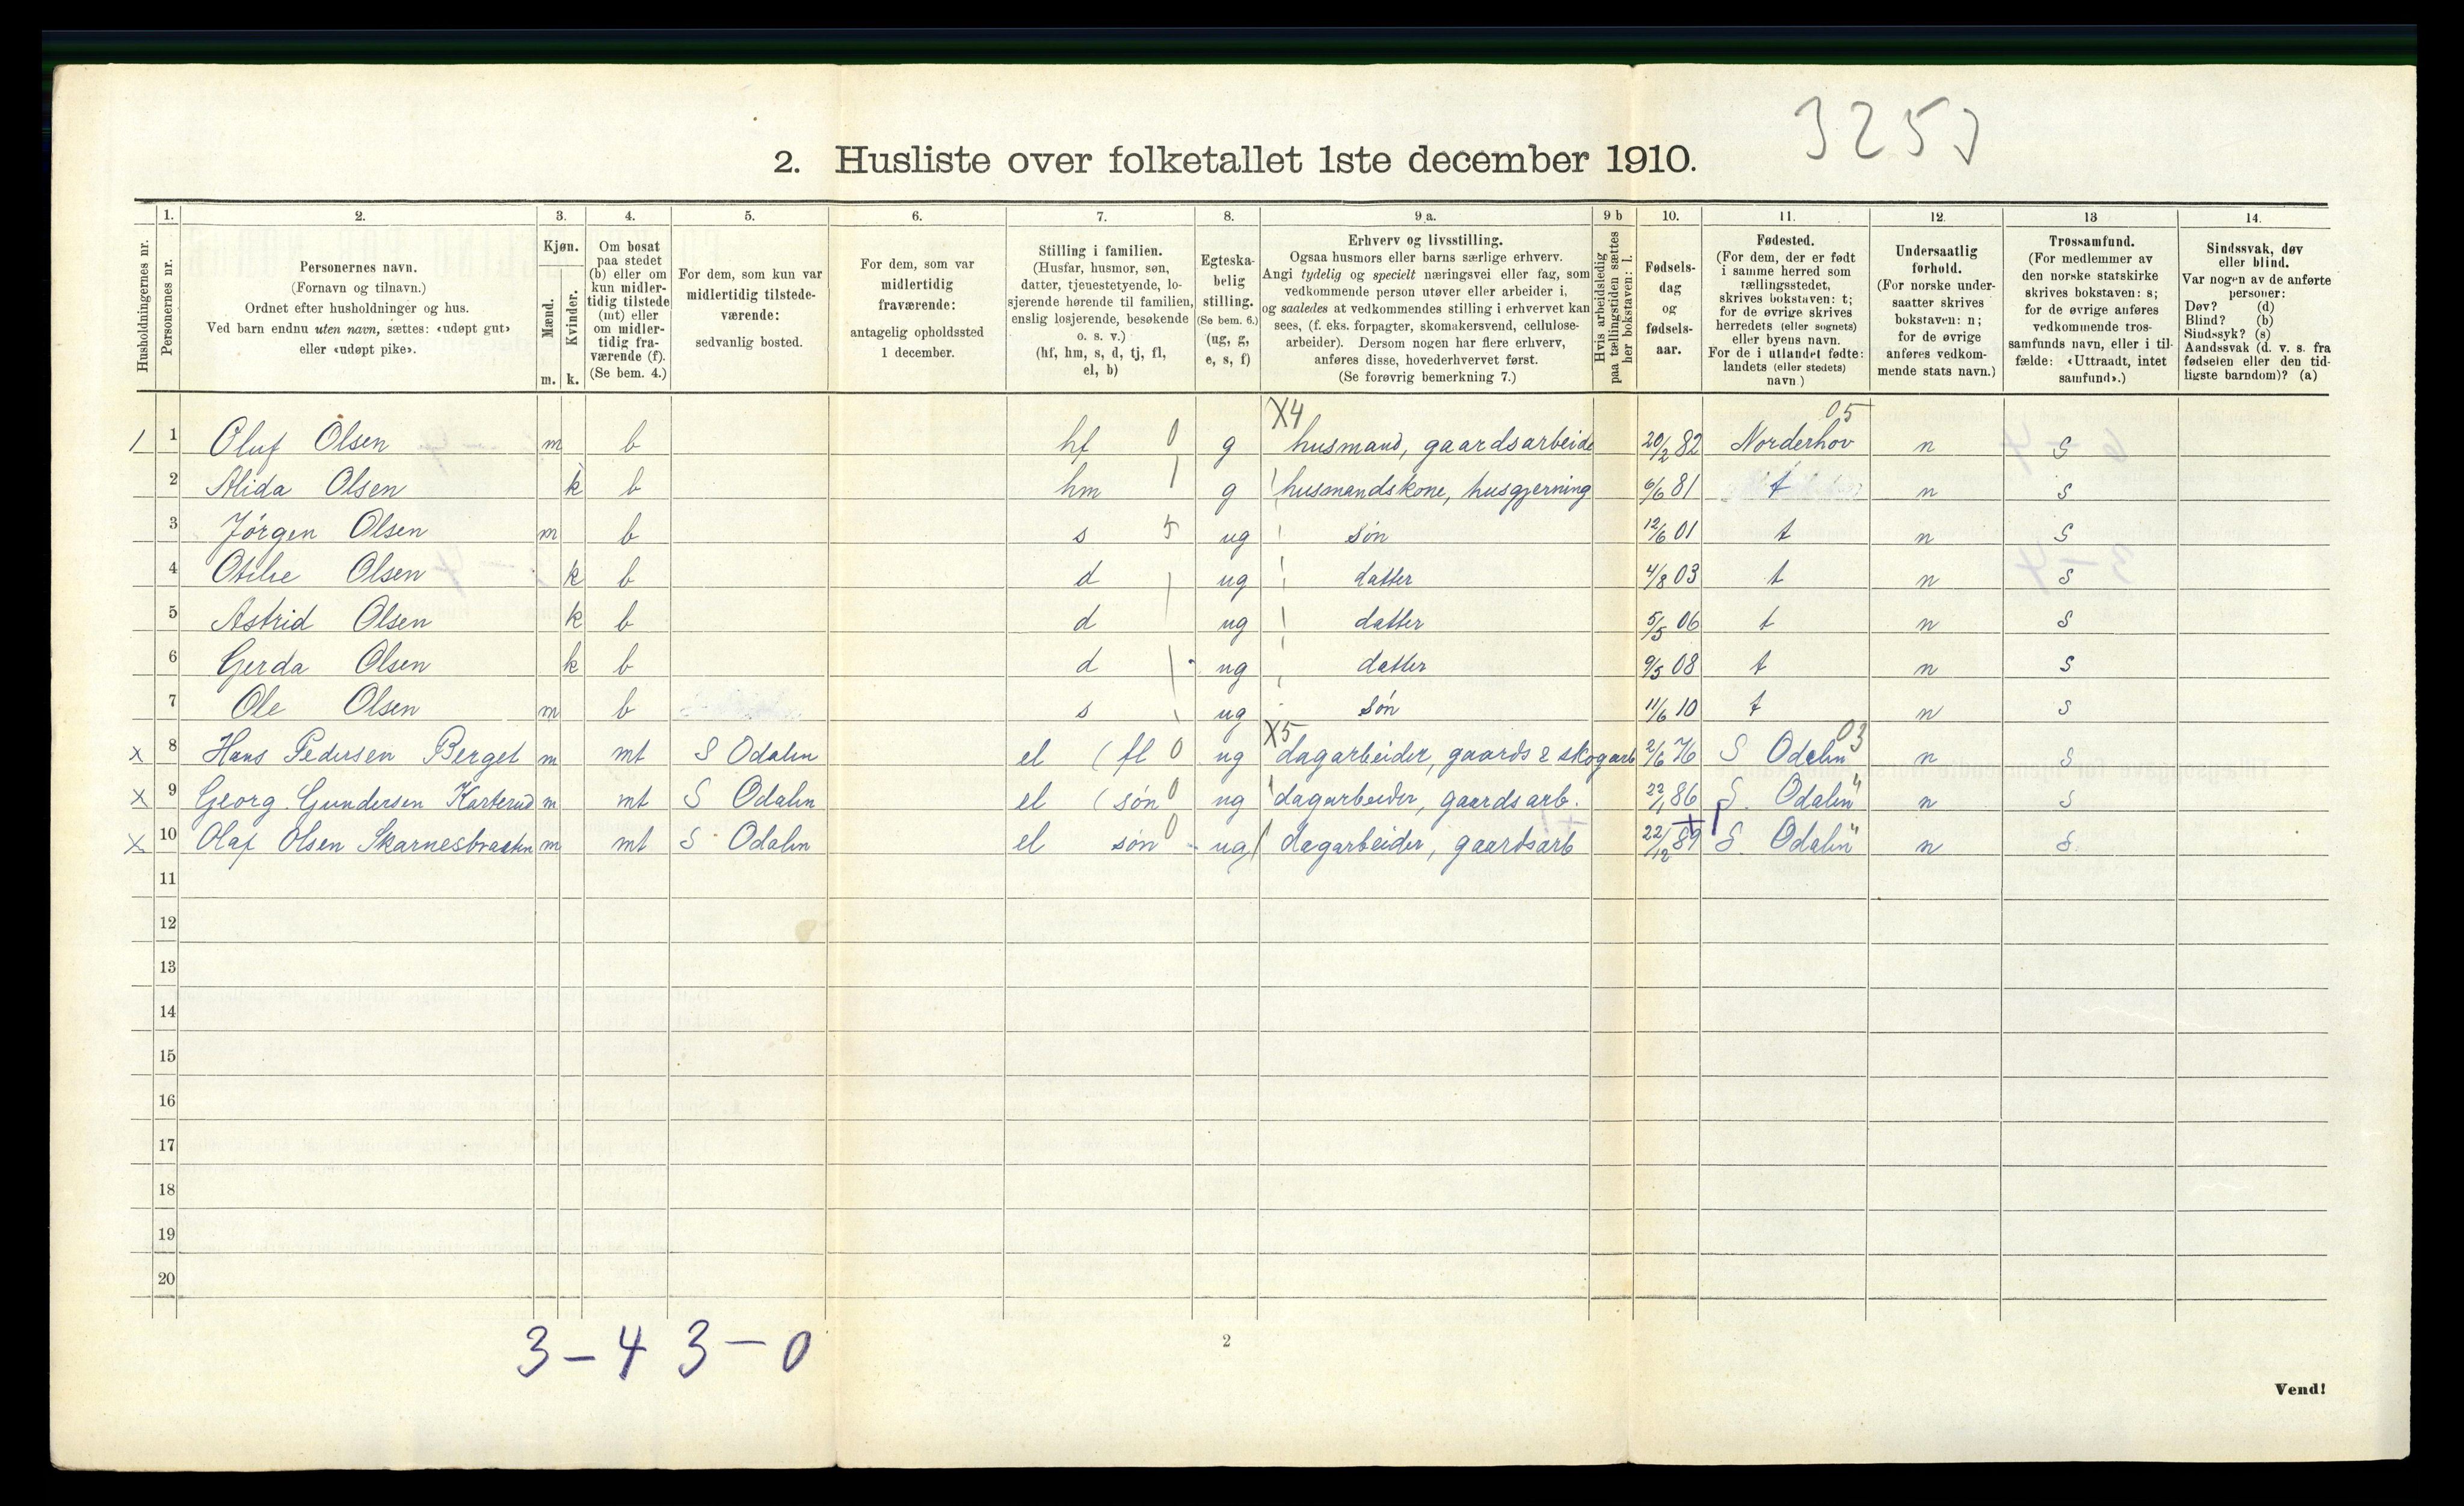 3253
2. Husliste over folketallet 1ste december 1910.
Husholdningernes nr.
1. Personernes nr.
2. Personernes navn. (Fornavn og tilnavn.) Ordnet efter husholdninger og hus. Ved barn endnu uten navn, sættes: «udøpt gut» eller «udøpt pike».
3. Kjøn. Mænd. m. Kvinder. k.
4. Om bosat paa stedet (b) eller om kun midlertidig tilstede (mt) eller om midlertidig fraværende (f). (Se bem. 4.)
5. For dem, som kun var midlertidig tilstedeværende: sedvanlig bosted.
6. For dem, som var midlertidig fraværende: antagelig opholdssted 1 december.
7. Stilling i familien. (Husfar, husmor, søn, datter, tjenestetyende, losjerende hørende til familien, enslig losjerende, besøkende o. s. v.) (hf, hm, s, d, tj, fl, el, b)
8. Egteskabelig stilling. (Se bem. 6.) (ug, g, e, s, f)
9 a. Erhverv og livsstilling. Ogsaa husmors eller barns særlige erhverv. Angi tydelig og specielt næringsvei eller fag, som vedkommende person utøver eller arbeider i, og saaledes at vedkommendes stilling i erhvervet kan sees, (f. eks. forpagter, skomakersvend, cellulosearbeider). Dersom nogen har flere erhverv, anføres disse, hovederhvervet først. (Se forøvrig bemerkning 7.)
9 b Hvis arbeidsledig paa tællingstiden sættes her bokstaven: l.
10. Fødselsdag og fødselsaar.
11. Fødested. (For dem, der er født i samme herred som tællingsstedet, skrives bokstaven: t; for de øvrige skrives herredets (eller sognets) eller byens navn. For de i utlandet fødte: landets (eller stedets) navn.)
12. Undersaatlig forhold. (For norske undersaatter skrives bokstaven: n; for de øvrige anføres vedkommende stats navn.)
13 Trossamfund. (For medlemmer av den norske statskirke skrives bokstaven: s; for de øvrige anføres vedkommende trossamfunds navn, eller i tilfælde: «Uttraadt, intet samfund».)
14. Sindssvak, døv eller blind. Var nogen av de anførte personer: Døv? (d) Blind? (b) Sindssyk? (s) Aandssvak (d. v. s. fra fødselen eller den tidligste barndom)? (a)
X4 05
1 1 Oluf Olsen m b hf 0 g husmand, gaardsarbeide 20/2 82 Norderhov n S
2 Alida Olsen k b hm g husmandskone, husgjerning 6/6 81 t n S
3 Jørgen Olsen m b s 5 ug søn 12/6 01 t n S
4 Otilie Olsen k b d ug datter 4/8 03 t n S
5 Astrid Olsen k b d ug datter 5/5 06 t n S
6 Gerda Olsen k b d ug datter 9/5 08 t n S
7 Ole Olsen m b s ug søn 11/6 10 t n S
X5 03
x 8 Hans Pedersen Berget m mt S Odalen el (fl 0 ug dagarbeider, gaards & skogarb 2/6 76 S Odalen n S
x 9 Georg Gundersen Karterud m mt S Odalen el (søn 0 ug dagarbeider, gaardsarb. 22/1 86 S. Odalen " n S
x 10 Olaf Olsen m mt S Odalen el søn 0 ug dagarbeider, gaardsarb 22/12 89 S. Odalen " n S
11
12
13
14
15
16
17
18
19
20
3 - 4 3 - 0
2
Vend!